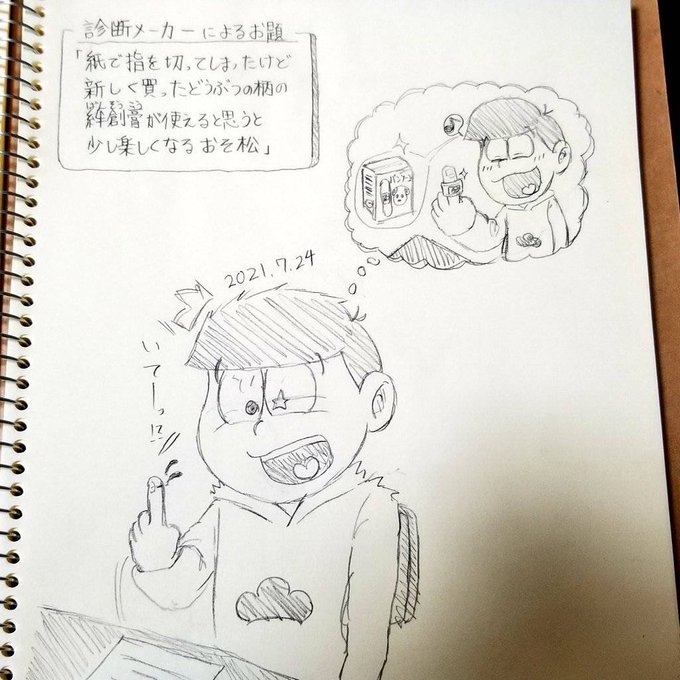 診断メーカーによるお題
「紙で指を切ってしまったけど
新しく買ったどうぶつの柄の
ばんそうこう
絆創膏が使えると思うと
少し楽しくなるおそ松」
バンソーコー
2021.7.24
いてーっ!?